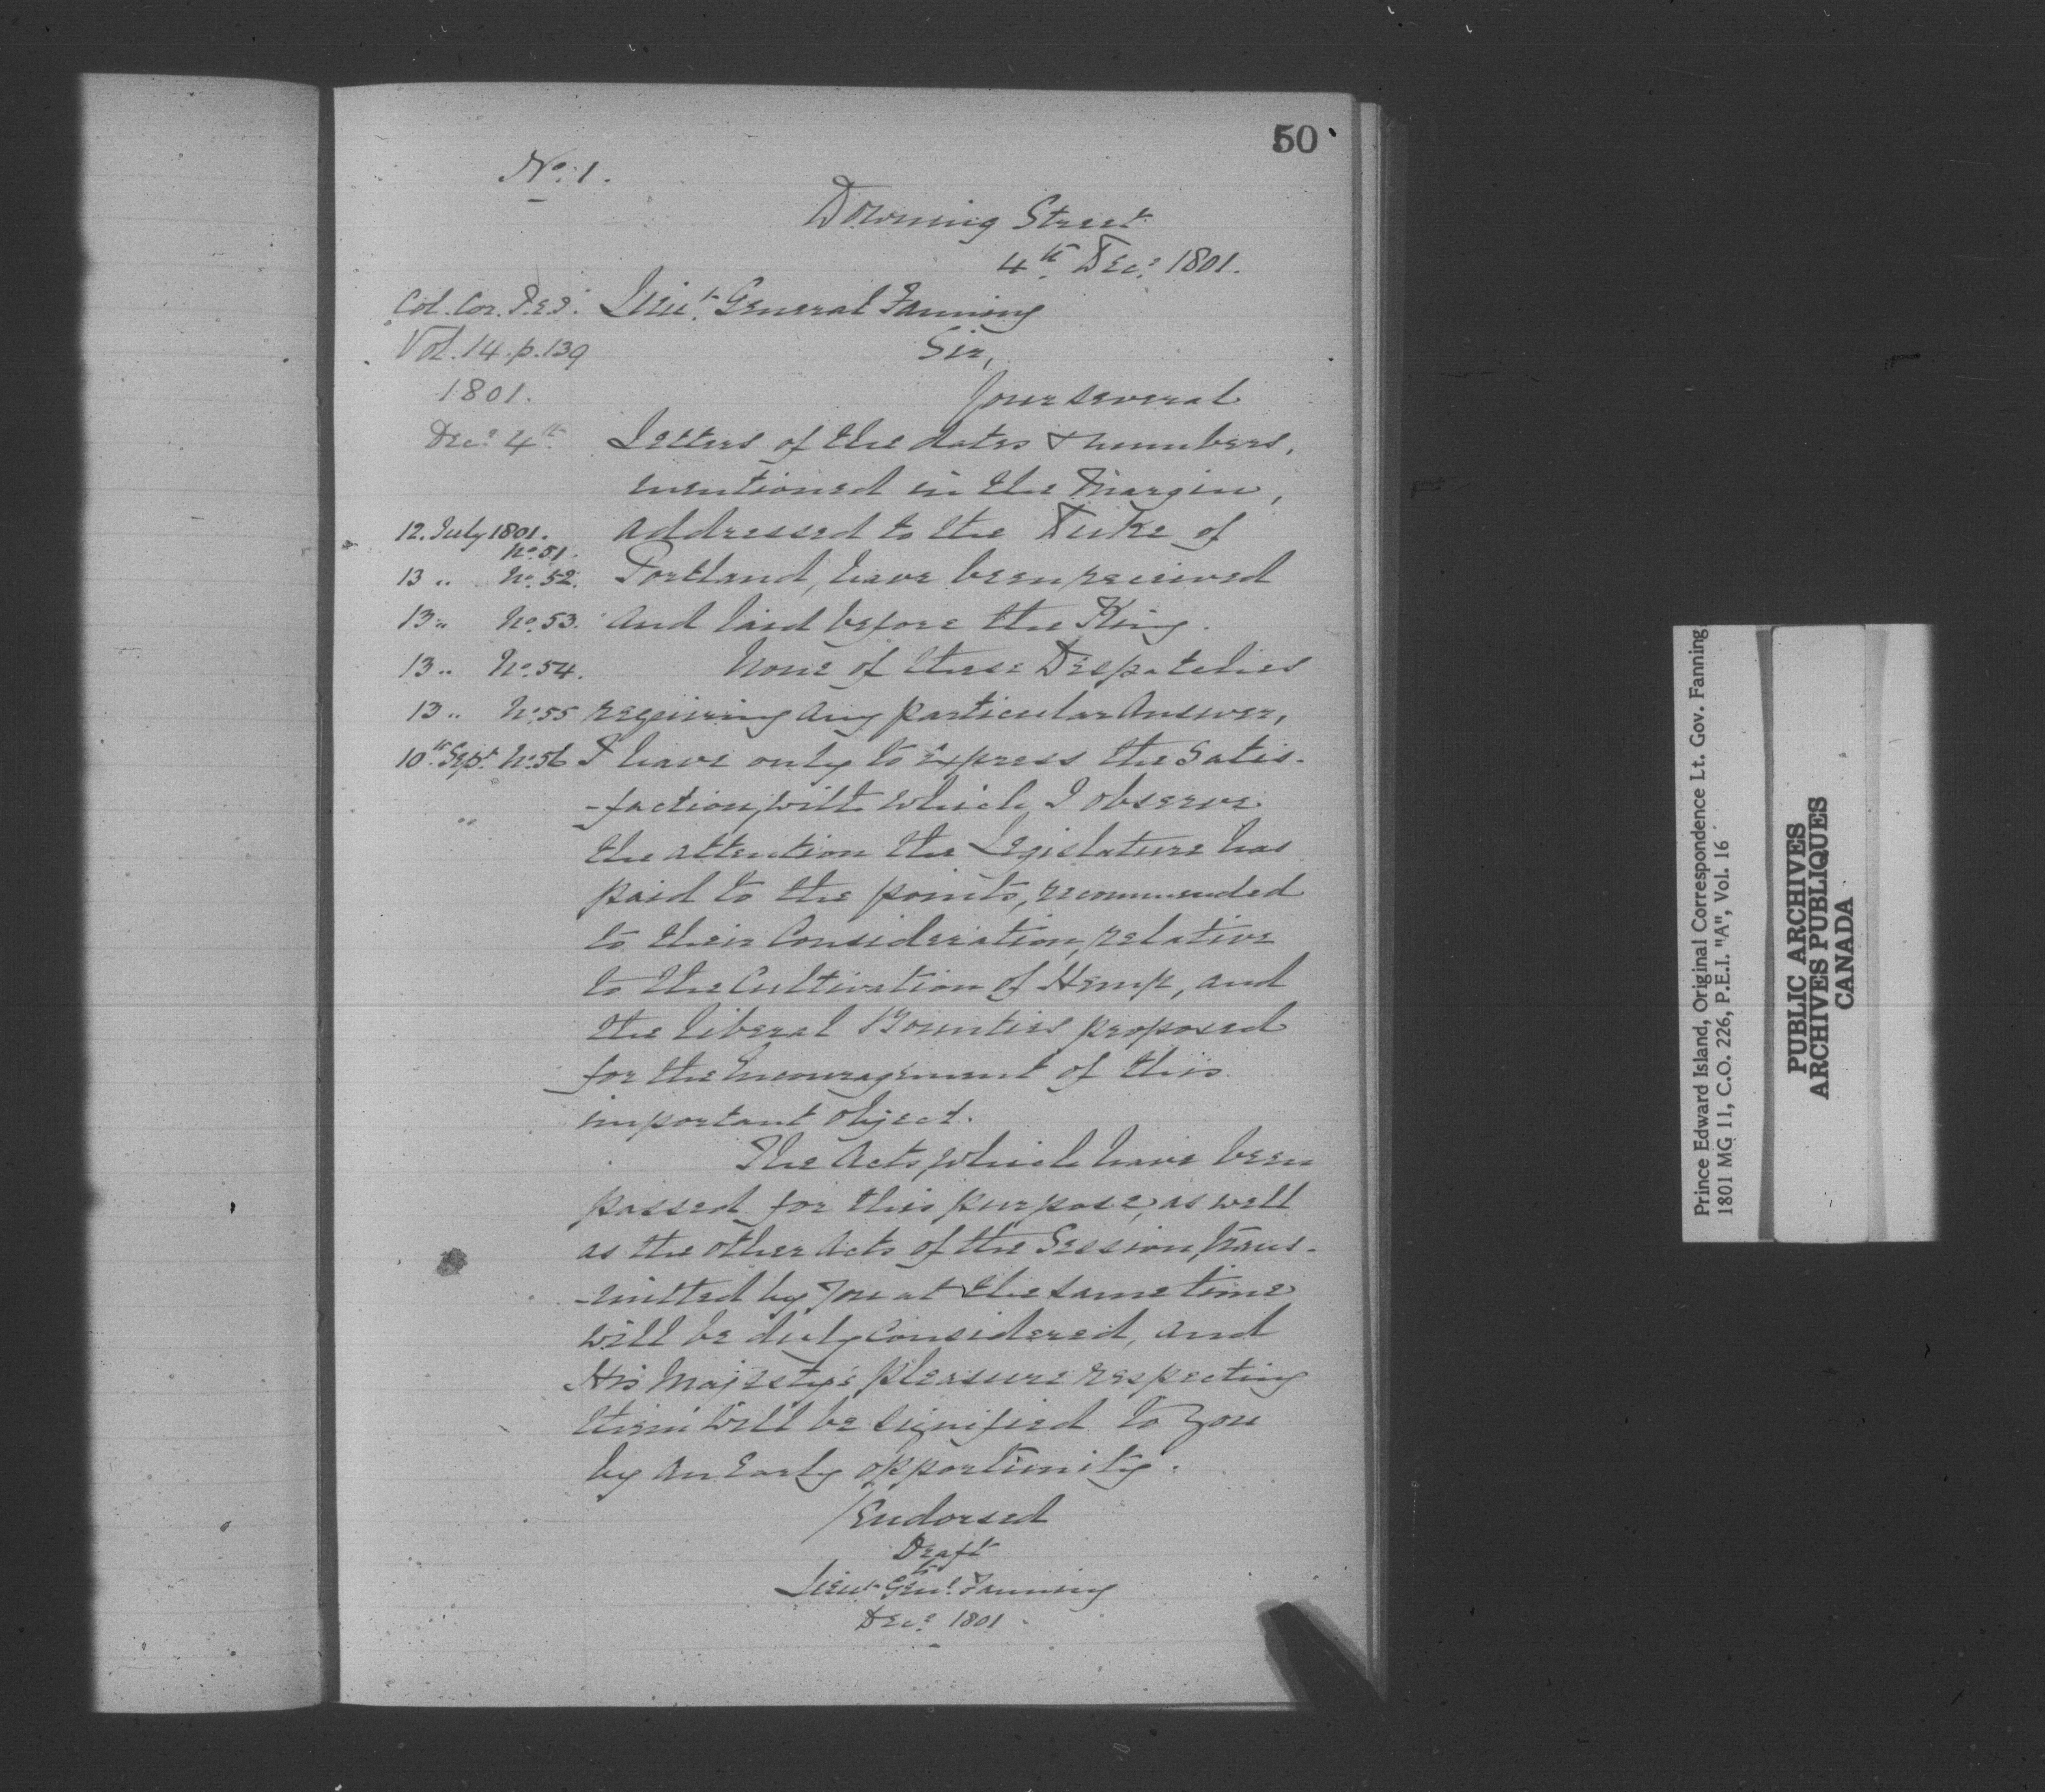 50
No. 1.
Downing Street
4th Decr 1801.
Col. Cor. P.E.I.
Vol. 14. p. 139
1801.
Decr 4th
Lieut. General Fanning
Sir,
Your several
Letters of the dates & numbers,
mentioned in the Margin,
12. July 1801. No. 51.
addressed to the Duke of
13 " No. 52.
Portland, have been received
13 " No. 53.
and laid before the King.
13 " No. 54.
None of these Despatches
13 " No. 55
requiring any particular Answer,
10th Sept. No. 56
I have only to express the Satis-
-faction, with which I observe
the attention the Legislature has
paid to the points, recommended
to their Consideration, relative
to the Cultivation of Hemp, and
the liberal Bounties proposed
for the Encouragement of this
important object.
The Acts, which have been
passed for this purpose, as well
as the other Acts of the Session, trans-
-mitted by You at the same time
will be duly Considered, and
His Majesty's pleasure respecting
them will be signified to You
by an Early opportunity.
/Endorsed
Draft
to
Lieut. Genl. Fanning
Decr 1801
Prince Edward Island, Original Correspondence Lt. Gov. Fanning
1801 MG 11, C.O. 226, P.E.I. "A", Vol. 16
PUBLIC ARCHIVES
ARCHIVES PUBLIQUES
CANADA